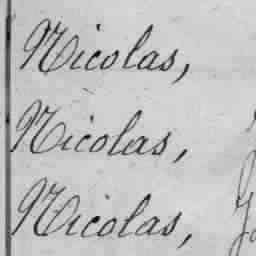 Nicolas,
Nicolas,
Nicolas,